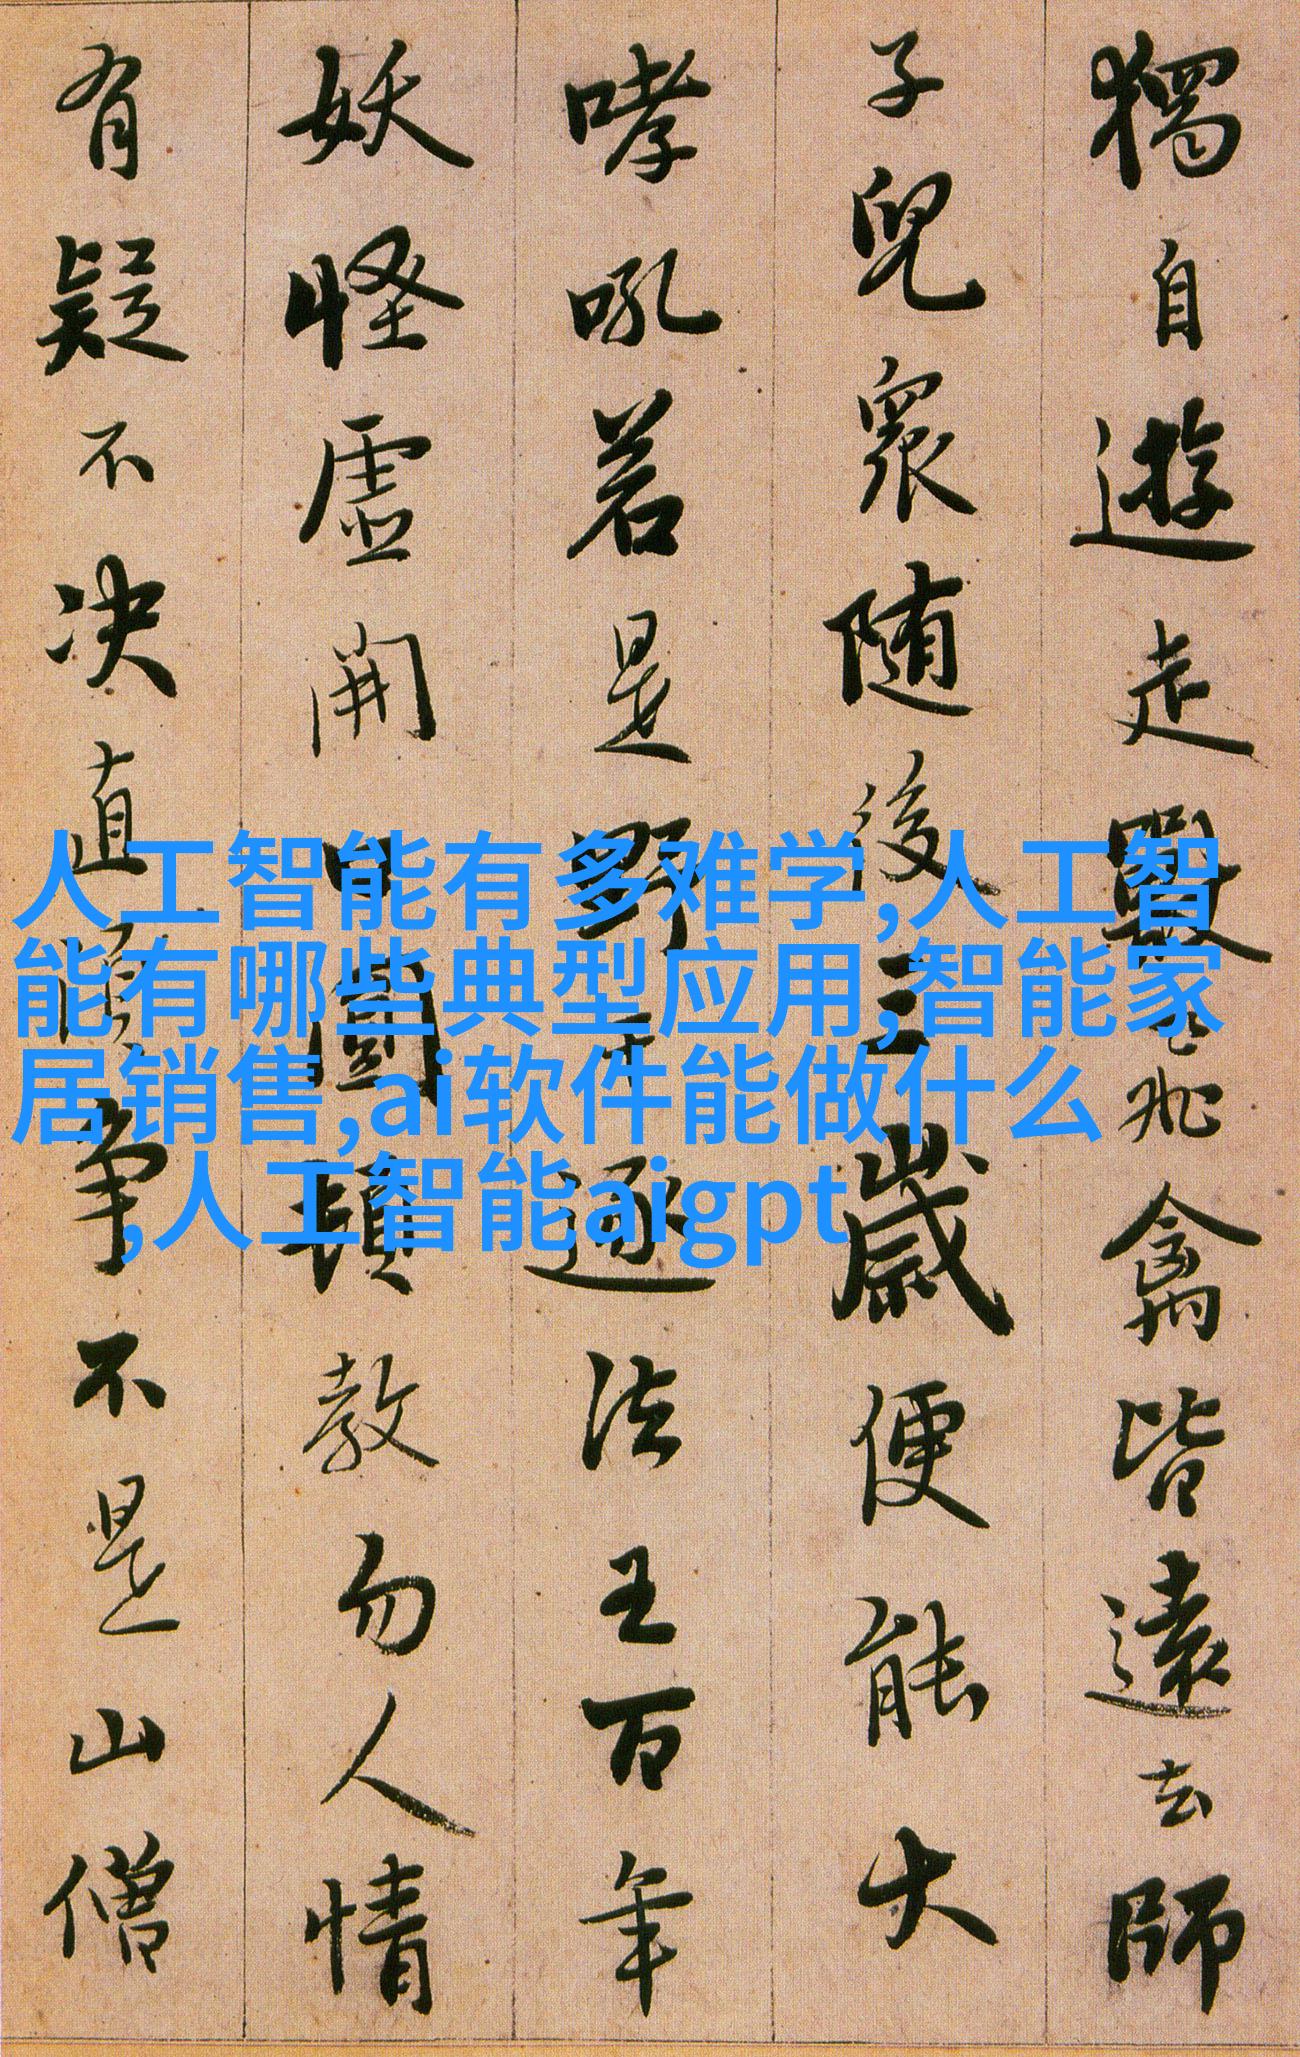 獨自遊走獸飛禽皆遠去師
子兒衆随後三歲便能大
哮吼若是野干逐法王百年
妖怪虛開口圓頓教勿人情
有疑不决直須争不是山僧
人工智能有多难学,人工智
能有哪些典型应用,智能家
居销售,ai软件能做什么
,人工智能aigpt